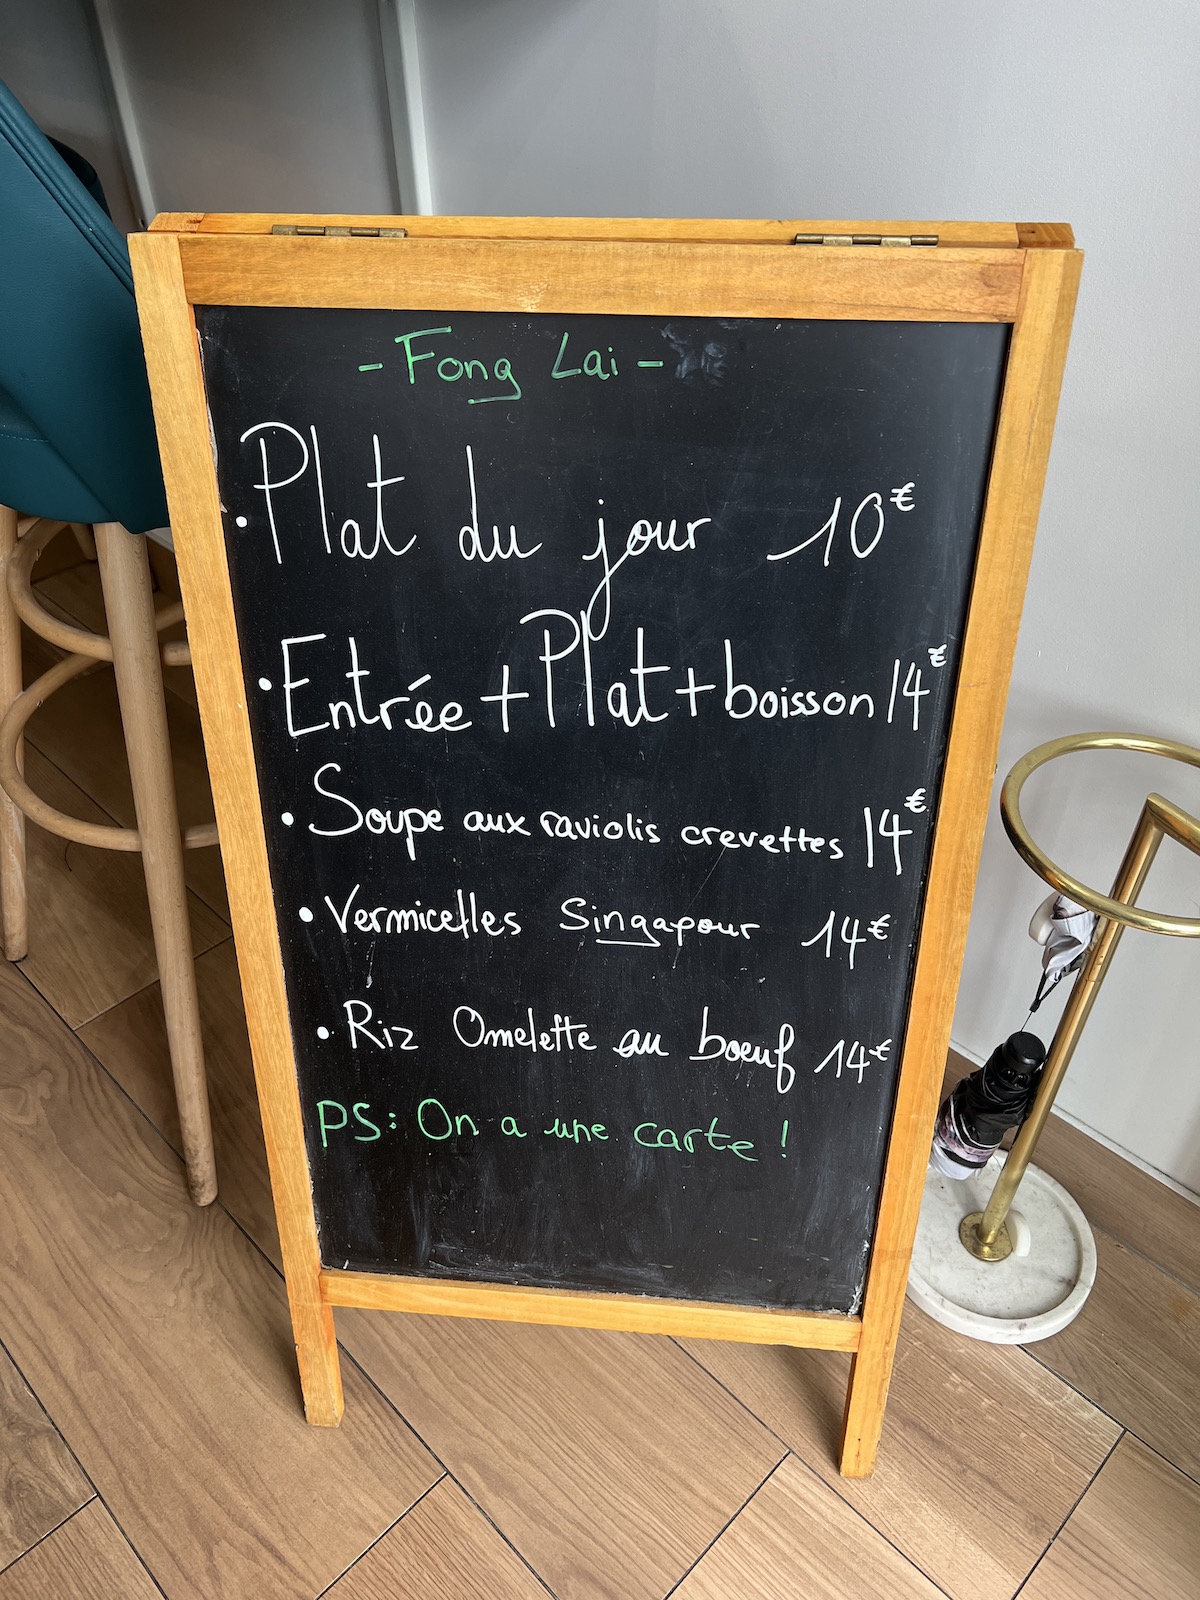 - Fong Lai -
• Plat du jour 10€
• Entrée + Plat + boisson 14€
• Soupe aux raviolis crevettes 14€
• Vermicelles Singapour 14€
• Riz Omelette au boeuf 14€
PS: On a une carte !